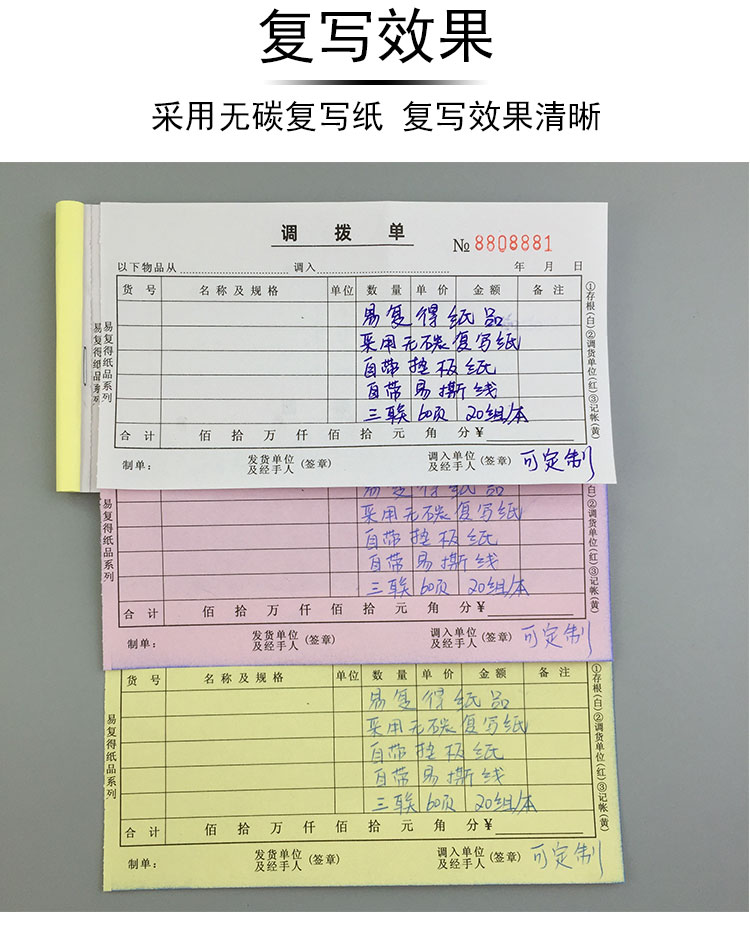 复写效果
采用无碳复写纸 复写效果清晰
调拨单
№ 8808881
以下物品从 调入 年 月 日
货号 名称及规格 单位 数量 单价 金额 备注
易复得纸品
采用无碳复写纸
自带垫板纸
自带易撕线
三联60页 20组/本
合计 佰拾万仟佰拾元角分¥
制单: 发货单位及经手人(签章) 调入单位及经手人(签章) 可定制
易复得纸品系列
易复得纸品系列
①存根(白)②调货单位(红)③记帐(黄)
易复得纸品
采用无碳复写纸
自带垫板纸
自带易撕线
三联60页 20组/本
合计 佰拾万仟佰拾元角分¥
制单: 发货单位及经手人(签章) 调入单位及经手人(签章) 可定制
易复得纸品系列
白)②调货单位(红)③记帐(黄)
货号 名称及规格 单位 数量 单价 金额 备注
易复得纸品
采用无碳复写纸
自带垫板纸
自带易撕线
三联60页 20组/本
合计 佰拾万仟佰拾元角分¥
制单: 发货单位及经手人(签章) 调入单位及经手人(签章) 可定制
易复得纸品系列
①存根(白)②调货单位(红)③记帐(黄)